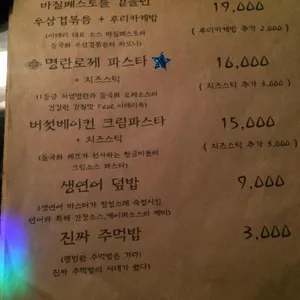 바질페스토를 곁들인
우삼겹볶음 + 후리카케밥 19,000
(이태리 대표 소스 바질페스토와 (후리카케밥 추가 2,000)
우삼겹볶음의 하모니)
명란로제 파스타 16,000
+ 치즈스틱 (치즈스틱 추가 3,000)
(1등급 저염명란과 로제소스의
건강한 감칠맛 Feat.이태리축)
버섯베이컨 크림파스타 15,000
+ 치즈스틱 (치즈스틱 추가 3,000)
(들국화 쉐프가 선사하는 황금비율의
크림소스 파스타)
생연어 덮밥 9,000
(생연어 마스터가 정성스레 숙성시킨
연어와 특제 간장소스,케이퍼소스의 케미)
진짜 주먹밥 3,000
(평범한 주먹밥은 가라!
진짜 주먹밥의 시대가 왔다!)